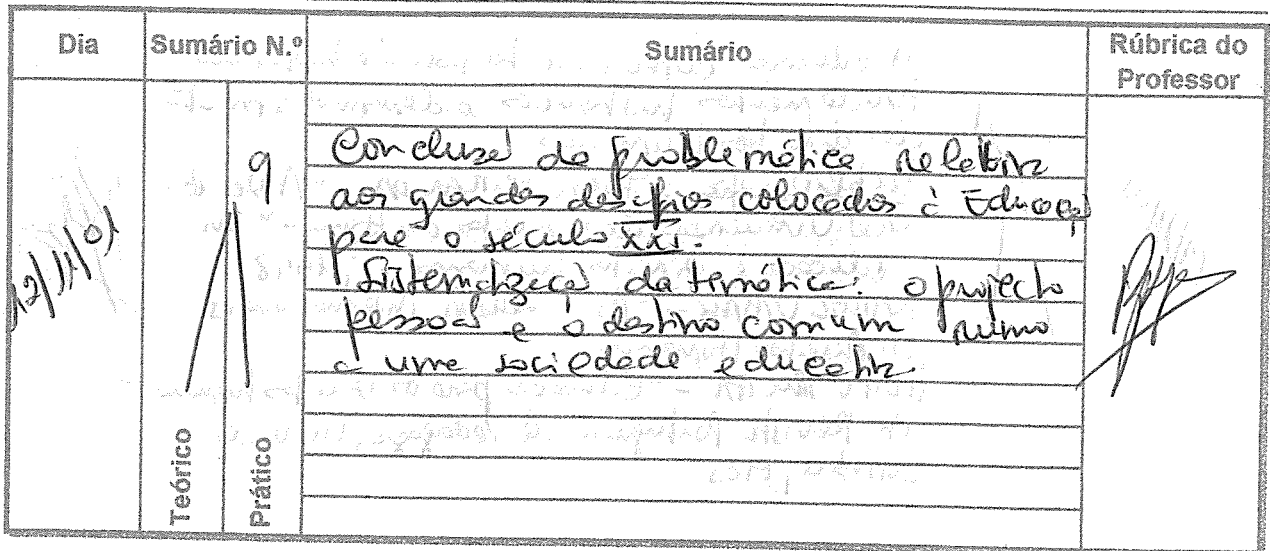 Dia
Sumário N.º
Sumário
Rúbrica do
Professor
12/11/01
9
Conclusão da problemática relativa
aos grandes desafios colocados à Educação
para o século XXI.
Sistematização da temática: o projecto
pessoal e o destino comum rumo
a uma sociedade educativa
Teórico
Prático